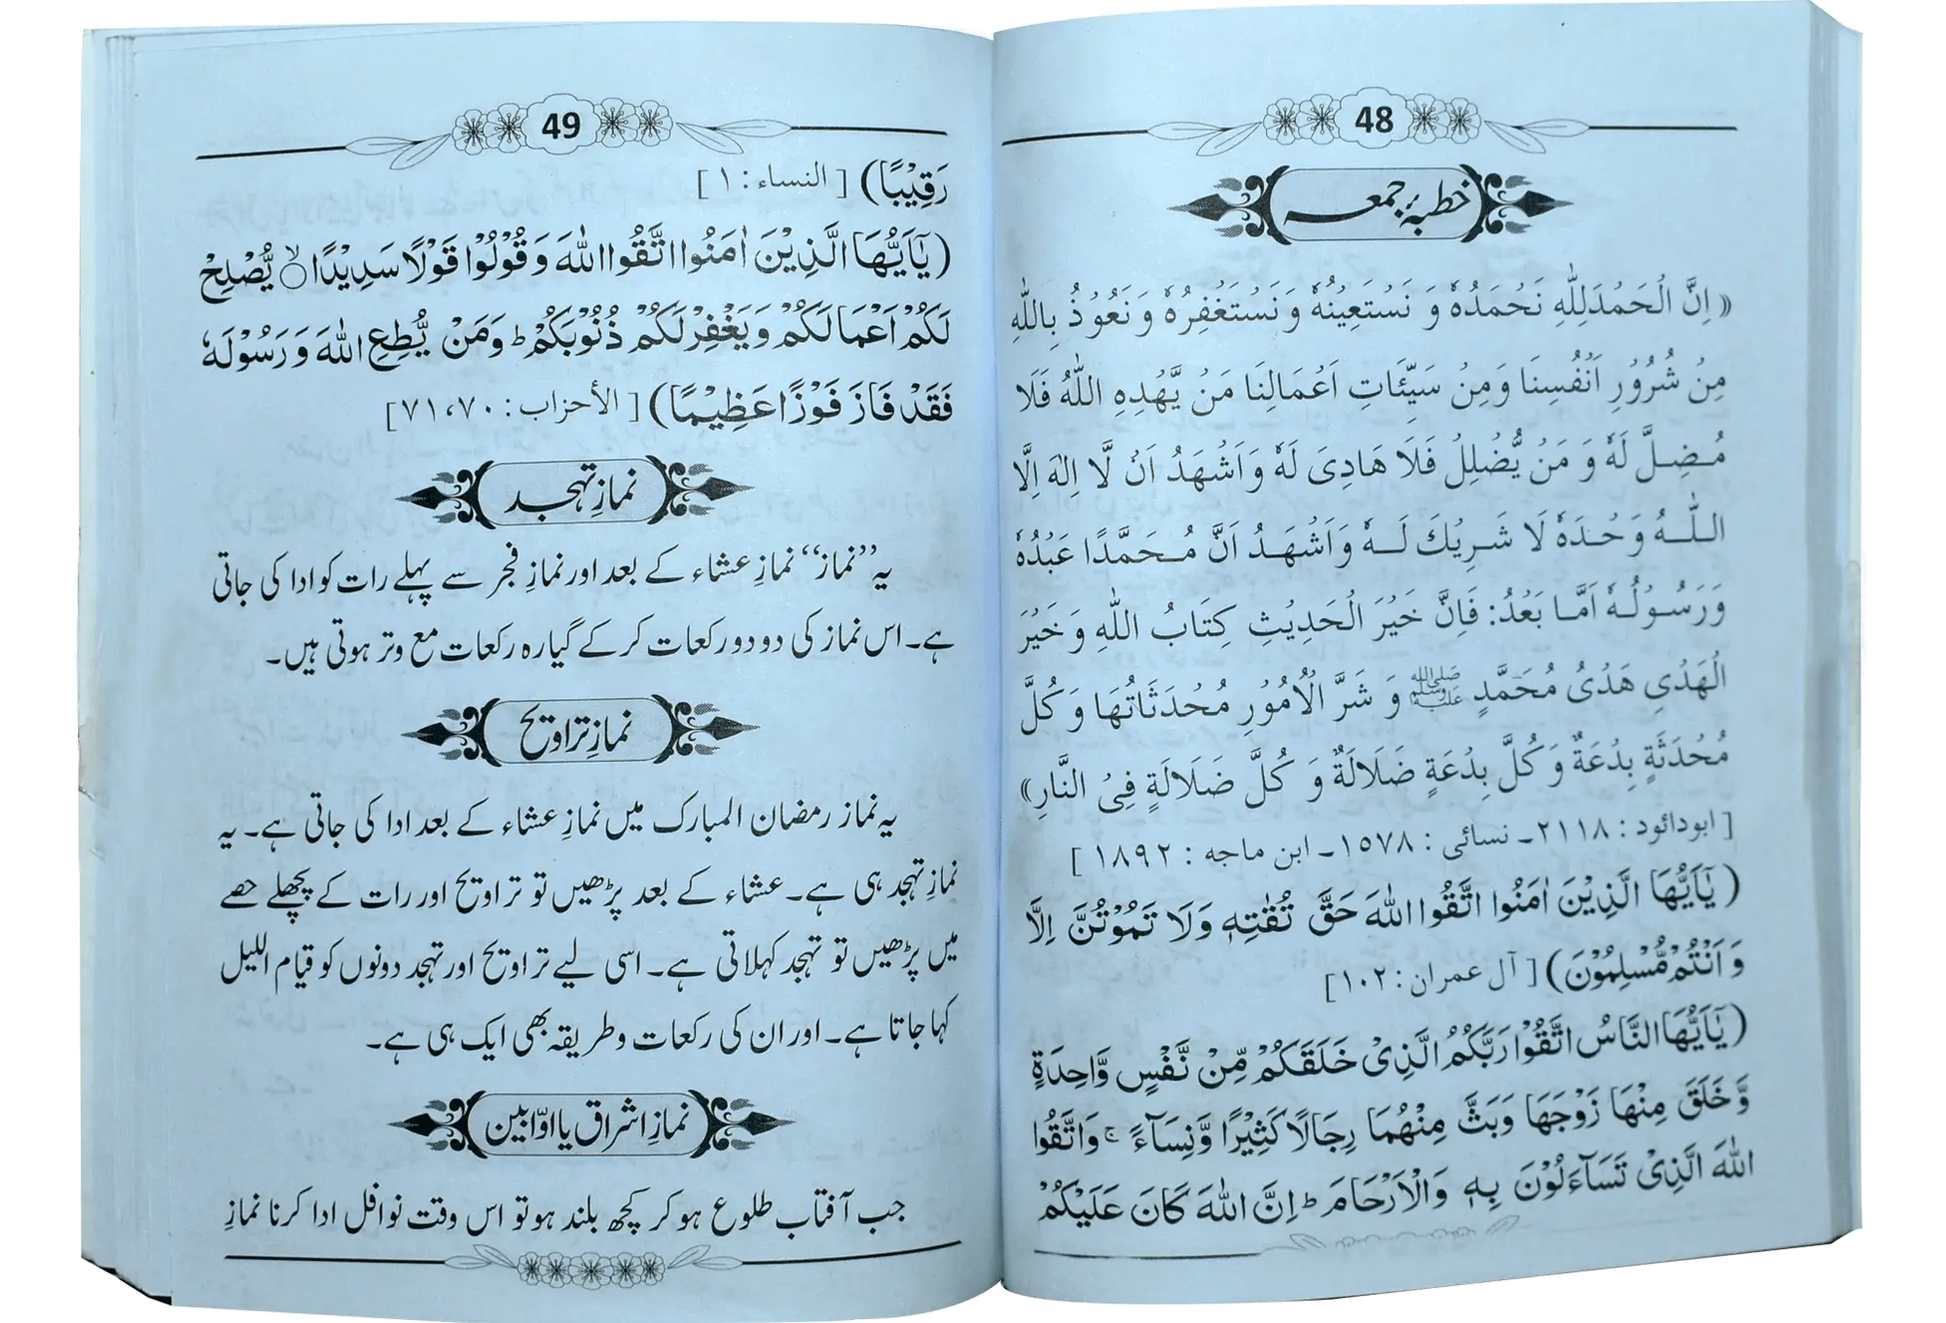 48
خطبۂ جمعہ
«اِنَّ الْحَمْدَلِلّٰهِ نَحْمَدُهٗ وَ نَسْتَعِيْنُهٗ وَنَسْتَغْفِرُهٗ وَنَعُوْذُ بِاللّٰهِ
مِنْ شُرُوْرِ اَنْفُسِنَا وَمِنْ سَيِّئَاتِ اَعْمَالِنَا مَنْ يَّهْدِهِ اللّٰهُ فَلَا
مُضِلَّ لَهٗ وَ مَنْ يُّضْلِلْ فَلَا هَادِىَ لَهٗ وَاَشْهَدُ اَنْ لَّا اِلٰهَ اِلَّا
اللّٰهُ وَحْدَهٗ لَا شَرِيْكَ لَهٗ وَاَشْهَدُ اَنَّ مُحَمَّدًا عَبْدُهٗ
وَرَسُوْلُهٗ اَمَّا بَعْدُ: فَاِنَّ خَيْرَ الْحَدِيْثِ كِتَابُ اللّٰهِ وَ خَيْرَ
الْهَدْىِ هَدْىُ مُحَمَّدٍ ﷺ وَ شَرَّ الْاُمُوْرِ مُحْدَثَاتُهَا وَ كُلَّ
مُحْدَثَةٍ بِدْعَةٌ وَ كُلَّ بِدْعَةٍ ضَلَالَةٌ وَ كُلَّ ضَلَالَةٍ فِى النَّارِ»
[ابودائود : ٢١١٨ـ نسائى : ١٥٧٨ـ ابن ماجه : ١٨٩٢]
(يٰٓاَيُّهَا الَّذِيْنَ اٰمَنُوا اتَّقُوا اللّٰهَ حَقَّ تُقٰتِهٖ وَلَا تَمُوْتُنَّ اِلَّا
وَ اَنْتُمْ مُّسْلِمُوْنَ) [آل عمران : ١٠٢]
(يٰٓاَيُّهَا النَّاسُ اتَّقُوْا رَبَّكُمُ الَّذِىْ خَلَقَكُمْ مِّنْ نَّفْسٍ وَّاحِدَةٍ
وَّخَلَقَ مِنْهَا زَوْجَهَا وَبَثَّ مِنْهُمَا رِجَالًا كَثِيْرًا وَّنِسَآءً ۚ وَاتَّقُوا
اللّٰهَ الَّذِىْ تَسَآءَلُوْنَ بِهٖ وَالْاَرْحَامَ ؕ اِنَّ اللّٰهَ كَانَ عَلَيْكُمْ
49
رَقِيْبًا) [النساء : ١]
(يٰٓاَيُّهَا الَّذِيْنَ اٰمَنُوا اتَّقُوا اللّٰهَ وَ قُوْلُوْا قَوْلًا سَدِيْدًا ۙ يُّصْلِحْ
لَكُمْ اَعْمَالَكُمْ وَ يَغْفِرْ لَكُمْ ذُنُوْبَكُمْ ؕ وَمَنْ يُّطِعِ اللّٰهَ وَ رَسُوْلَهٗ
فَقَدْ فَازَ فَوْزًا عَظِيْمًا) [الأحزاب : ٧٠،٧١]
نمازِ تہجد
یہ ”نماز“ نمازِ عشاء کے بعد اور نمازِ فجر سے پہلے رات کو ادا کی جاتی
ہے۔ اس نماز کی دو دو رکعات کر کے گیارہ رکعات مع وتر ہوتی ہیں۔
نمازِ تراویح
یہ نماز رمضان المبارک میں نمازِ عشاء کے بعد ادا کی جاتی ہے۔ یہ
نمازِ تہجد ہی ہے۔ عشاء کے بعد پڑھیں تو تراویح اور رات کے پچھلے حصے
میں پڑھیں تو تہجد کہلاتی ہے۔ اسی لیے تراویح اور تہجد دونوں کو قیام اللیل
کہا جاتا ہے۔ اور ان کی رکعات و طریقہ بھی ایک ہی ہے۔
نمازِ اشراق یا اوّابین
جب آفتاب طلوع ہو کر کچھ بلند ہو تو اس وقت نوافل ادا کرنا نمازِ